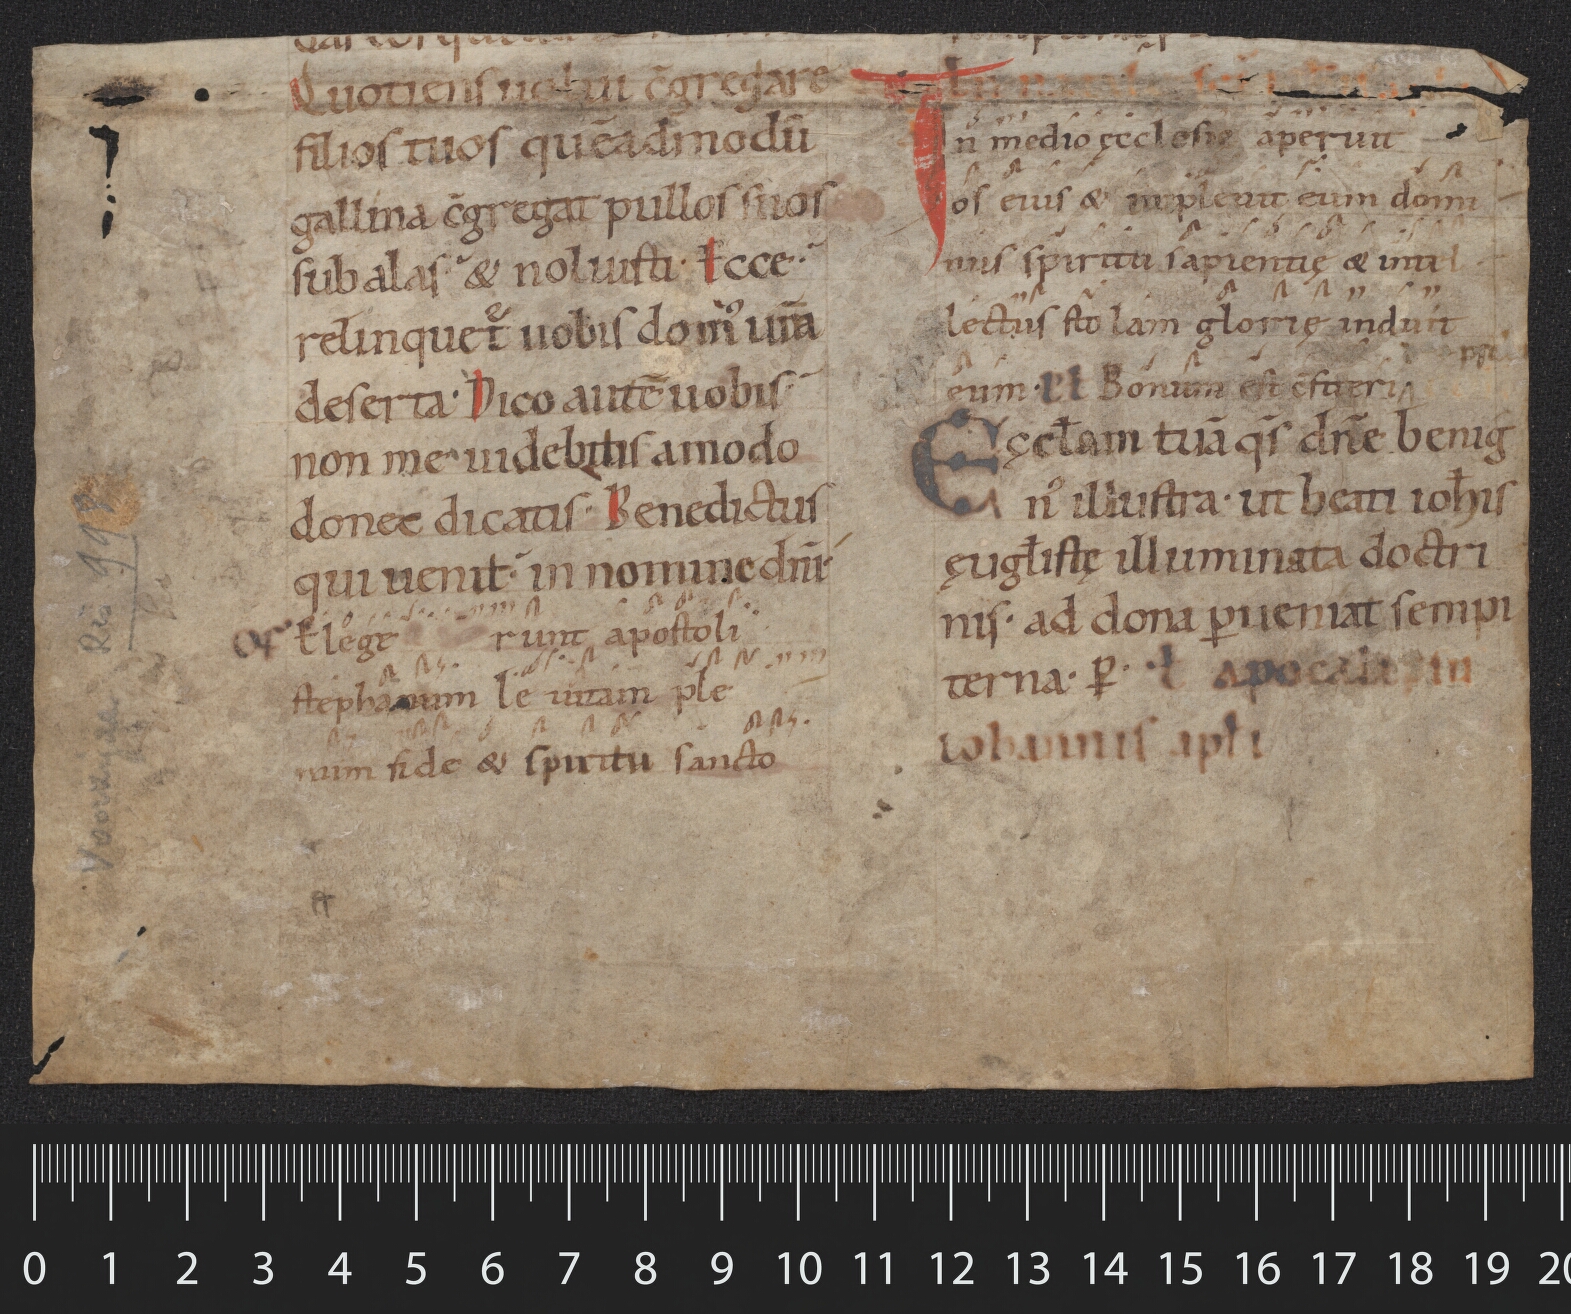 Quotiens uolui c̄gregare
filios tuos quēadmodū
gallina c̄gregat pullos suos
sub alas & noluisti· Ecce
relinquet̄ uobis dom̄ ur̄a
deserta· Dico autē uobis
non me uidebitis amodo
donec dicatis· Benedictus
qui uenit· in nomine dn̄i
OF Elege runt apostoli
stephanum le uitam ple
num fide & spiritu sancto
In medio ęcclesie aperuit
os eius & impleuit eum domi
nus spiritu sapientię & intel
lectus stolam glorię induit
eum· Bonum est c̄fiteri
Eccl̄am tuā qs̄ dn̄e benig
nº illustra· ut beati ioh̄is
ęugl̄istę illuminata doctri
nis· ad dona ꝑueniat sempi
terna· P̄· apocalipsin
iohannis apl̄i
Rés 998